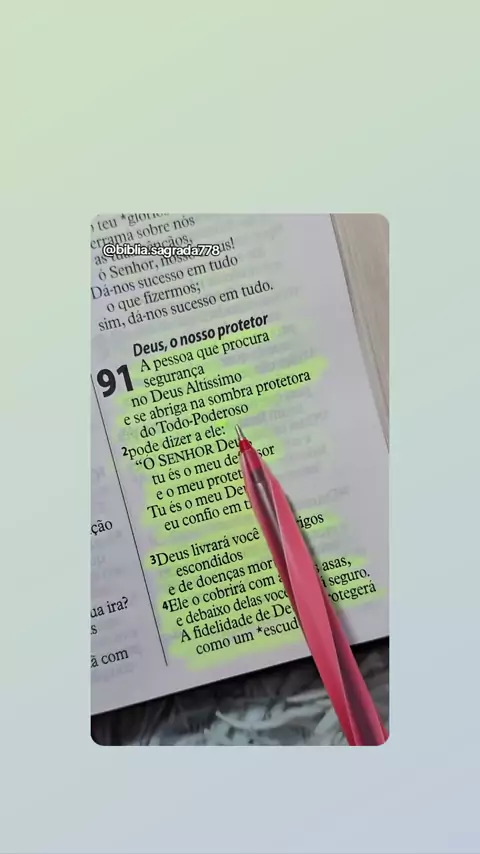 teu *glorio
errama sobre nós
as tuas bênçãos,
@biblia.sagrada778
ó Senhor, nosso us!
Dá-nos sucesso em tudo
o que fizermos;
sim, dá-nos sucesso em tudo.
Deus, o nosso protetor
91 A pessoa que procura
segurança
no Deus Altíssimo
e se abriga na sombra protetora
do Todo-Poderoso
2pode dizer a ele:
“Ó SENHOR Deus
tu és o meu de sor
e o meu protet
Tu és o meu De
eu confio em t
3Deus livrará você rigos
escondidos
e de doenças mor
4Ele o cobrirá com a s asas,
e debaixo delas você á seguro.
A fidelidade de De rotegerá
como um *escud
ção
ua ira?
s
ã com